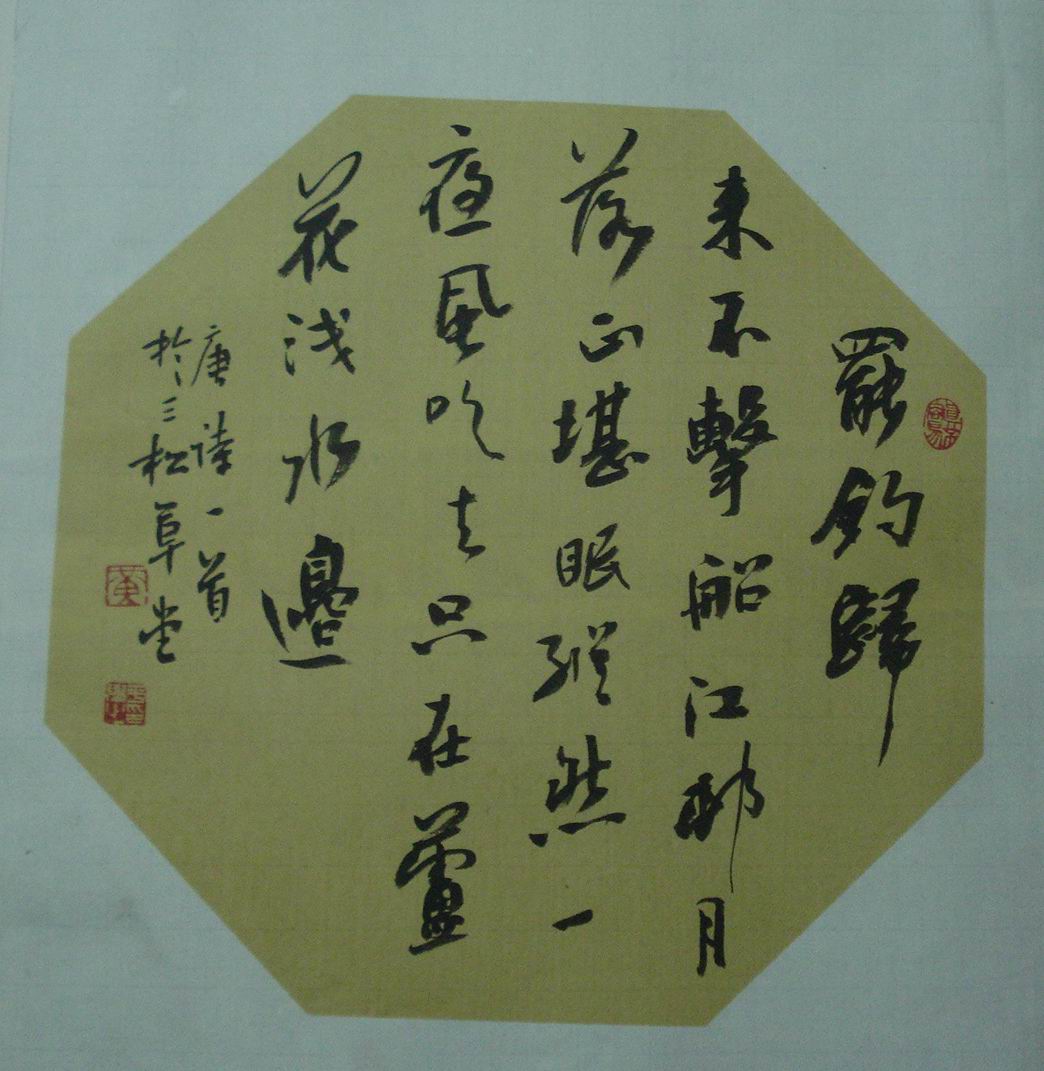 罷釣歸
来不擊船江邨月
落正堪眠縱然一
夜風吹去只在蘆
花浅水邊
唐詩一首
於三松阜堂